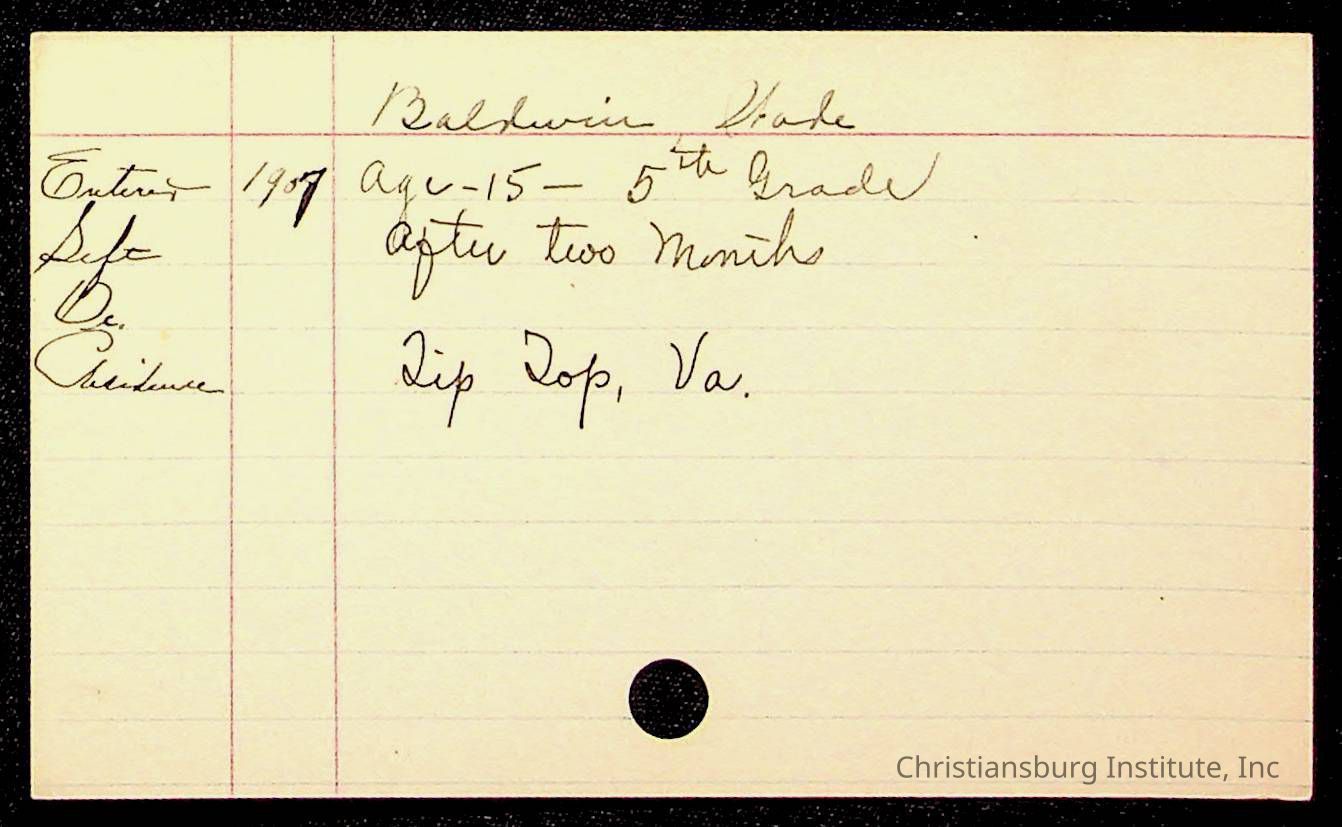 Baldwin,
Entered 1907 Age - 15 - 5th Grade
Left After two Months
Residence Tip Top, Va.
Christiansburg Institute, Inc